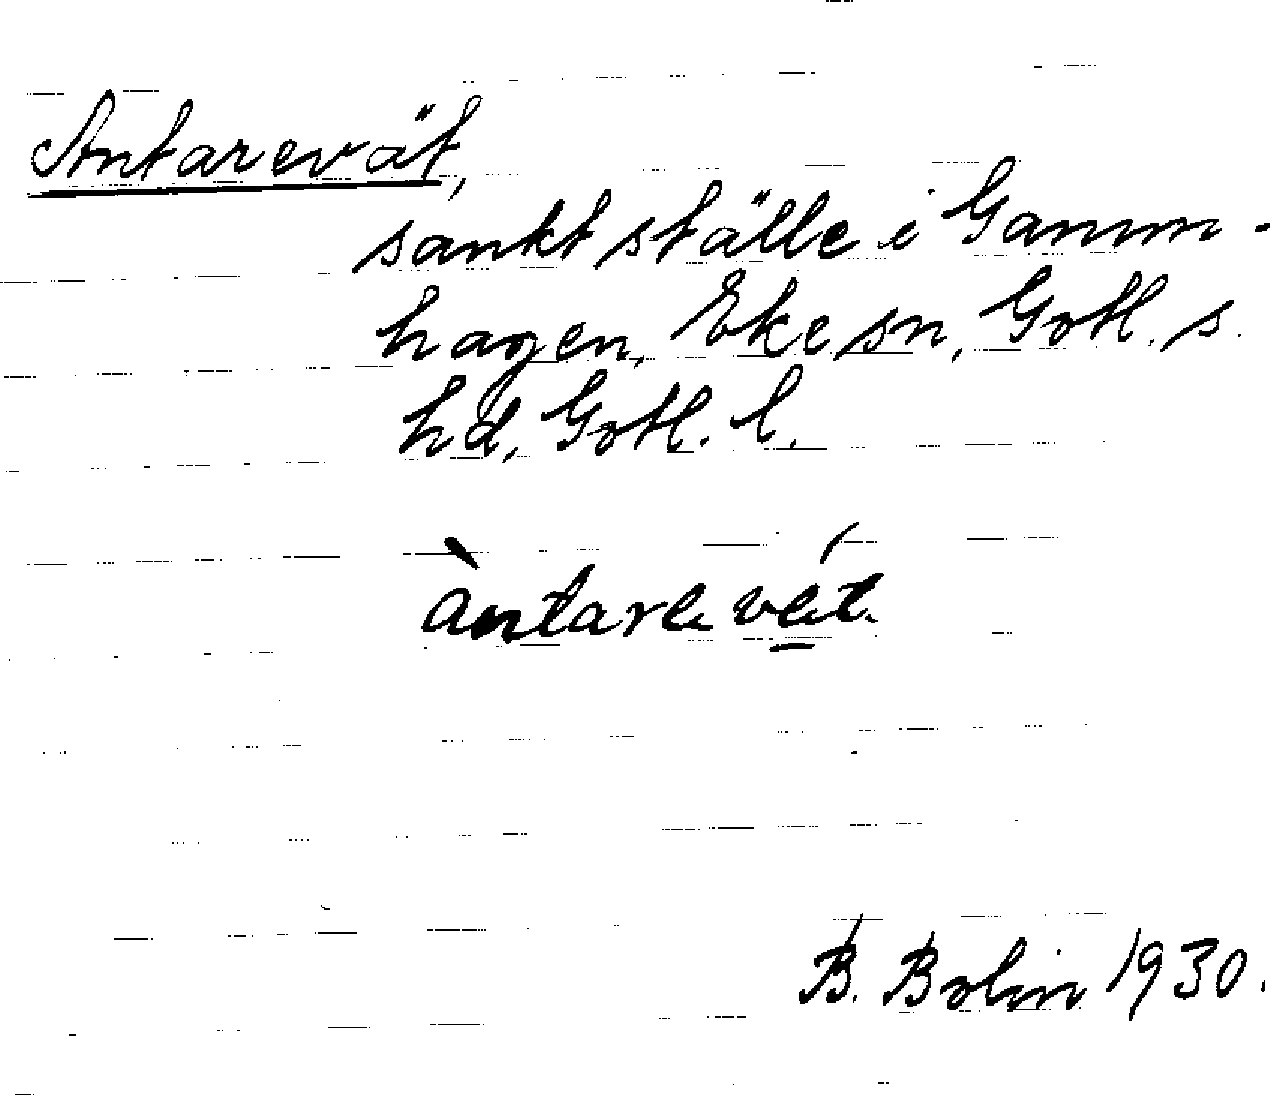 Antarevät,
sankt ställe i Gamm-
hagen, Eke sn, Gotl. s.
hd, Gotl. l.
àntarevät.
B. Bolin 1930.